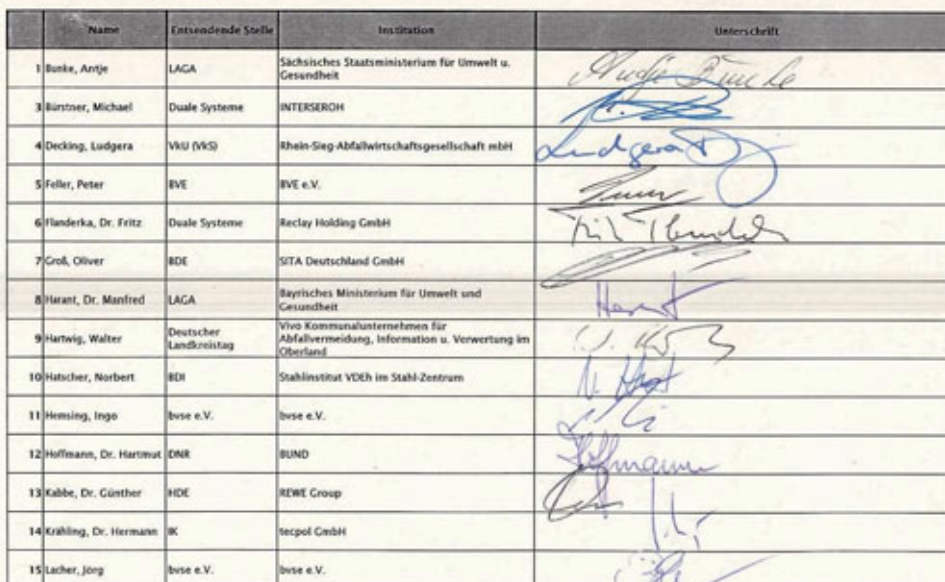 Name Entsendende Stelle Institution Unterschrift
1 Bunke, Antje LAGA Sächsisches Staatsministerium für Umwelt u.
Gesundheit
Antje Bunke
3 Bürstner, Michael Duale Systeme INTERSEROH
4 Decking, Ludgera VkU (VkS) Rhein-Sieg-Abfallwirtschaftsgesellschaft mbH
Ludgera D
5 Feller, Peter BVE BVE e.V.
6 Flanderka, Dr. Fritz Duale Systeme Reclay Holding GmbH
7 Groß, Oliver BDE SITA Deutschland GmbH
8 Harant, Dr. Manfred LAGA Bayrisches Ministerium für Umwelt und
Gesundheit
Harant
9 Hartwig, Walter Deutscher
Landkreistag
Vivo Kommunalunternehmen für
Abfallvermeidung, Information u. Verwertung im
Oberland
10 Hatscher, Norbert BDI Stahlinstitut VDEh im Stahl-Zentrum
11 Hemsing, Ingo bvse e.V. bvse e.V.
12 Hoffmann, Dr. Hartmut DNR BUND
Hoffmann
13 Kabbe, Dr. Günther HDE REWE Group
14 Krähling, Dr. Hermann IK tecpol GmbH
15 Lacher, Jörg bvse e.V. bvse e.V.